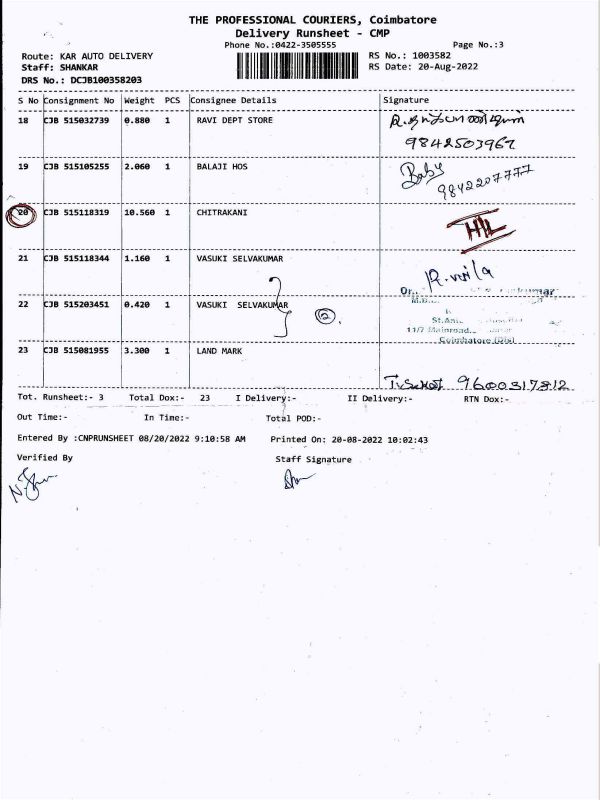 THE PROFESSIONAL COURIERS, Coimbatore
Delivery Runsheet - CMP
Phone No.:0422-3505555 Page No.:3
Route: KAR AUTO DELIVERY RS No.: 1003582
Staff: SHANKAR RS Date: 20-Aug-2022
DRS No.: DCJB100358203
S No Consignment No Weight PCS Consignee Details Signature
18 CJB 515032739 0.880 1 RAVI DEPT STORE
9842503967
19 CJB 515105255 2.060 1 BALAJI HOS Baby
9842207777
20 CJB 515118319 10.560 1 CHITRAKANI
21 CJB 515118344 1.160 1 VASUKI SELVAKUMAR
Dr.
22 CJB 515203451 0.420 1 VASUKI SELVAKUMAR 2
11/7 Mainroad
Coimbatore (Dis)
23 CJB 515081955 3.300 1 LAND MARK
9600317812
Tot. Runsheet:- 3 Total Dox:- 23 I Delivery:- II Delivery:- RTN Dox:-
Out Time:- In Time:- Total POD:-
Entered By :CNPRUNSHEET 08/20/2022 9:10:58 AM Printed On: 20-08-2022 10:02:43
Verified By Staff Signature